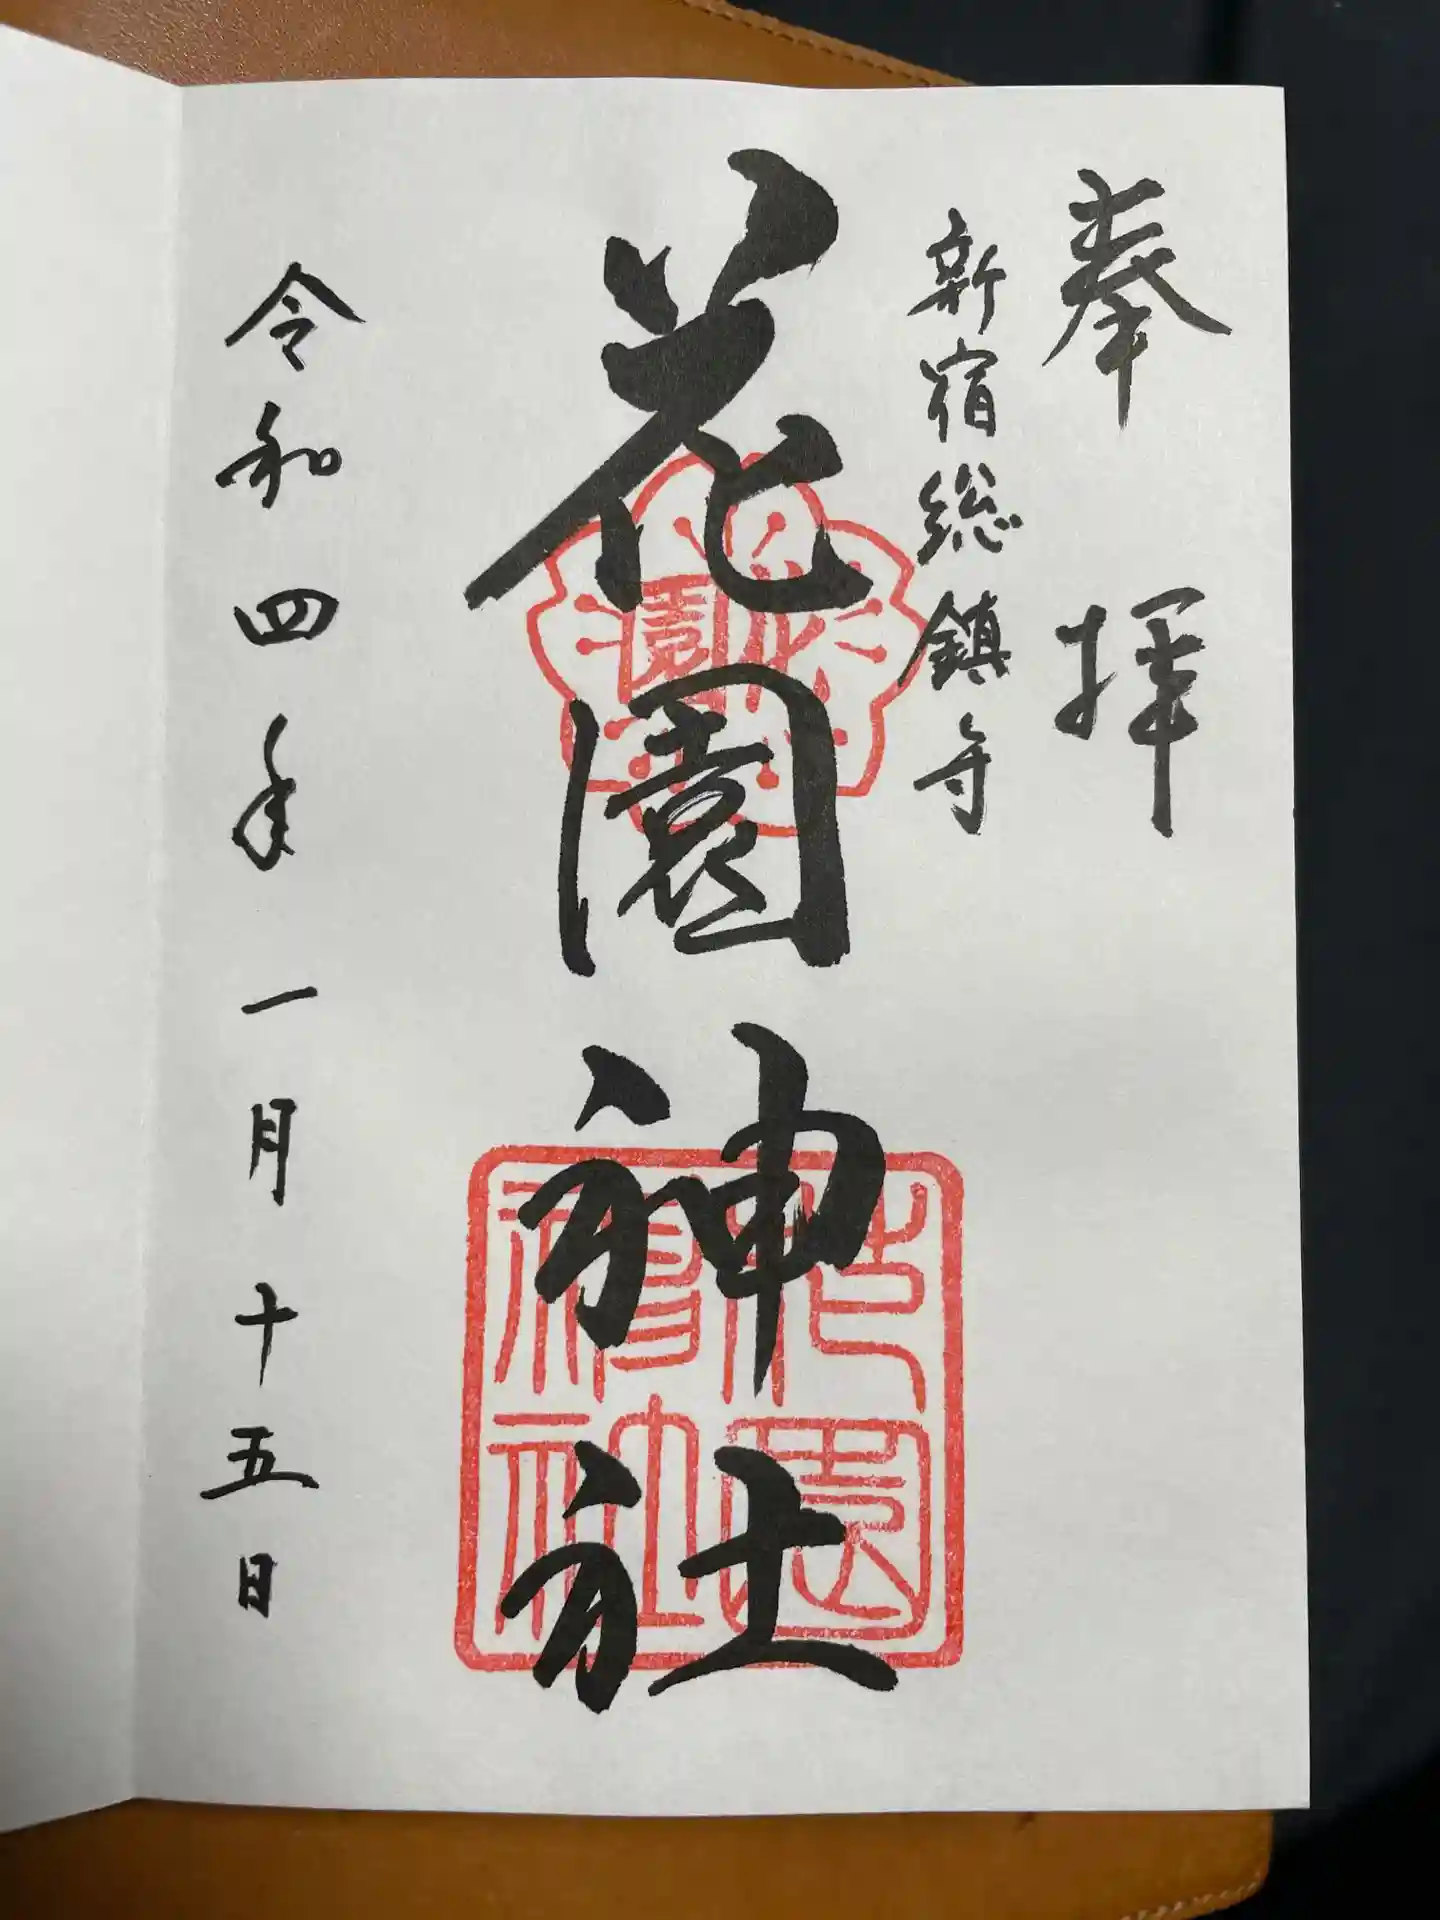 奉拝
新宿総鎮守
花園神社
花園
花園神社
令和四年一月十五日